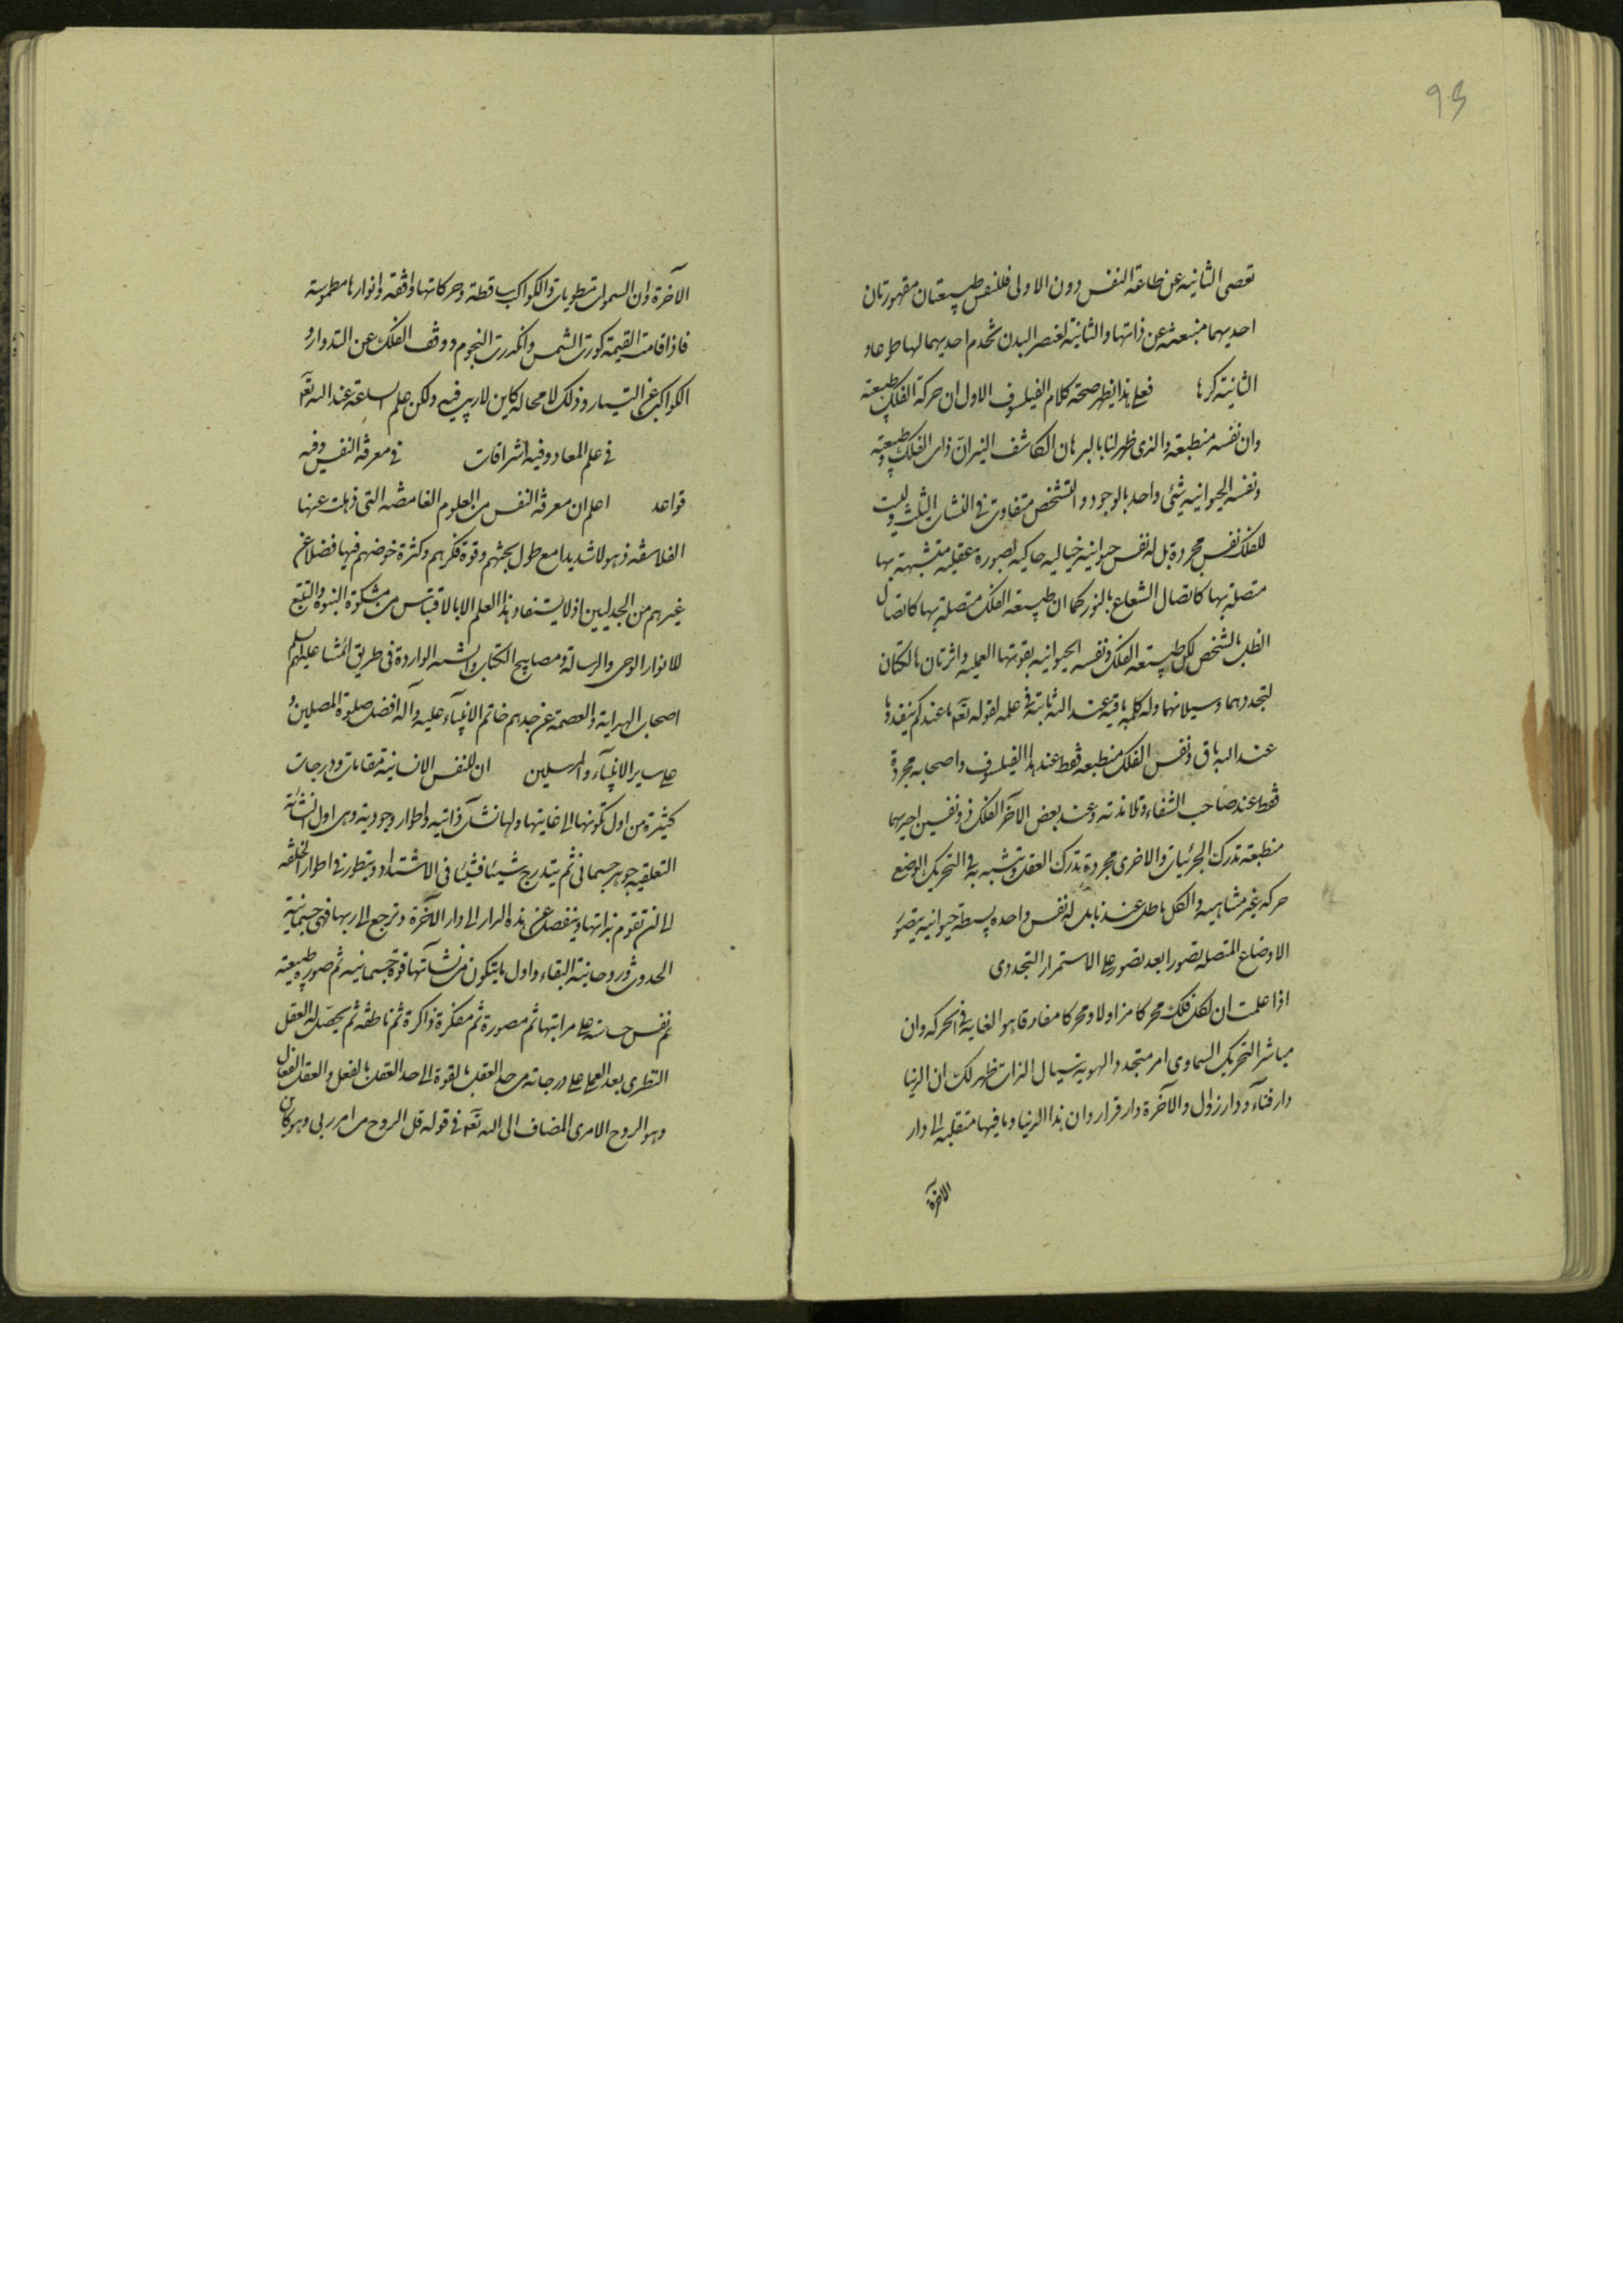 93
تعصی الثانیه عن طاعة النفس دون الاولی فللنفس طبیعتان مقهورتان
احدیهما منبعثه عن ذاتها والثانیة لعنصر البدن تخدم احدیهما لها طوعا و
الثانیة کرها فعلی هذا یظهر صحة کلام الفیلسوف الاول ان حرکة الفلک طبیعیة
وان نفسه منطبعة والذی ظهر لنا بالبرهان الکاشف النیر ان ذات الفلک وطبیعته
ونفسه الحیوانیه شیئ واحد بالوجود والتشخص متفاوت فی النشات الثلث ولیست
للفلک نفس مجردة بل له نفس حیوانیه خیالیه حاکیه لصورة عقلیه متشبهة بها
متصلة بها کاتصال الشعاع بالنور کما ان طبیعة الفلک متصلة بها کاتصال
الظل بالشخص لکن طبیعة الفلک ونفسه الحیوانیه بقوتها العملیه داثرتان هالکتان
لتجددهما وسیلانهما وله کلمة باقیة عند الله ثابتة فی علمه لقوله تعم ما عندکم ینفد وما
عند الله باق ونفس الفلک منطبعه فقط عند هذا الفیلسوف واصحابه مجردة
فقط عند صاحب الشفاء وتلامذته وعند بعض الآخر الفلک ذو نفسین احدیهما
منطبعة تدرک الجزئیات والاخری مجردة تدرک العقل وتتشبه به فی التحریک الوضع
حرکه غیر متناهیه والکل باطل عندنا بل له نفس واحده بسیطة حیوانیه یتصور
الاوضاع المتصله تصورا بعد تصور علی الاستمرار التجددی
اذا علمت ان لکل فلک محرکا مزاولا ومحرکا مفارقا هو الغایه فی الحرکه وان
مباشر التحریک السماوی امر متجدد الهویة سیال الذات ظهر لک ان الدنیا
دار فنآء ودار زوال والآخرة دار قرار وان هذا الدنیا وما فیها منقلبه الی دار
الآخرة
الآخرة وان السموات مطویات والکواکب ساقطة وحرکاتها واقفه وانوارها مطموسة
فاذا قامت القیمة کورت الشمس وانکدرت النجوم ووقف الفلک عن التدوار و
الکواکب عن التسیار وذلک لا محاله کاین لا ریب فیه ولکن علم الساعة عند الله تعم
فی علم المعاد وفیه اشراقات فی معرفة النفس وفیه
قواعد اعلم ان معرفة النفس من العلوم الغامضه التی ذهلت عنها
الفلاسفه ذهولا شدیدا مع طول بحثهم وقوة فکرهم وکثرة خوضهم فیها فضلا عن
غیرهم من الجدلیین اذ لا یستفاد هذا العلم الا بالاقتباس من مشکوة النبوة والتتبع
للانوار الوحی والرسالة ومصابیح الکتاب والسنه الوارده فی طریق ائمتنا علیهم السلم
اصحاب الهدایة والعصمة عن جدهم خاتم الانبیآء علیه وآله افضل صلوة المصلین و
علی سایر الانبیآء والمرسلین ان للنفس الانسانیة مقامات ودرجات
کثیرة من اول تکونها الی غایتها ولها نشآت ذاتیه واطوار وجودیة وهی اول النشأة
التعلقیه جوهر جسمانی ثم یتدرج شیئا فشیئا فی الاشتداد ویتطور فی اطوار الخلقه
الی ان تقوم بذاتها وینفصل عن هذه الدار الی دار الآخرة وترجع الی ربها فهی جسمانیة
الحدوث وروحانیة البقاء واول ما یتکون من نشآتها قوة جسمانیه ثم صورة طبیعیة
ثم نفس حساسة علی مراتبها ثم مصورة ثم مفکرة ذاکرة ثم ناطقه ثم یحصل له العقل
النظری بعد العملی علی درجاته من حد العقل بالقوة الی حد العقل بالفعل والعقل الفعال
وهو الروح الامری المضاف الی الله تعم فی قوله قل الروح من امر ربی وهو کائن